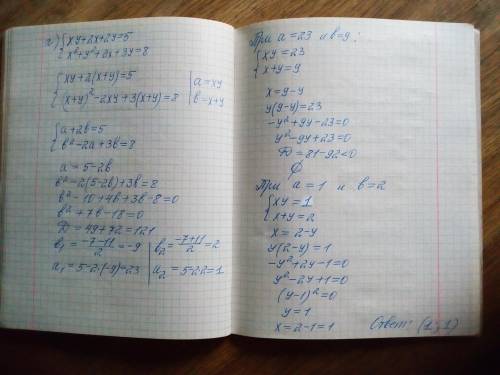 2) { xy+2x+2y=5
{ x²+y²+2x+3y=8
{ xy+2(x+y)=5 | a=xy
{ (x+y)²-2xy+3(x+y)=8 | b=x+y
{ a+2b=5
{ b²-2a+3b=8
a=5-2b
b²-2(5-2b)+3b=8
b²-10+4b+3b-8=0
b²+7b-18=0
D=49+72=121
b₁=(-7-11)/2=-9 | b₂=(-7+11)/2=2
a₁=5-2·(-9)=23 | a₂=5-2·2=1
При a=23 и b=9:
{ xy=23
{ x+y=9
x=9-y
y(9-y)=23
-y²+9y-23=0
y²-9y+23=0
D=81-92<0
∅
При a=1 и b=2
{ xy=1
{ x+y=2
x=2-y
y(2-y)=1
-y²+2y-1=0
y²-2y+1=0
(y-1)²=0
y=1
x=2-1=1
Ответ: (1;1)